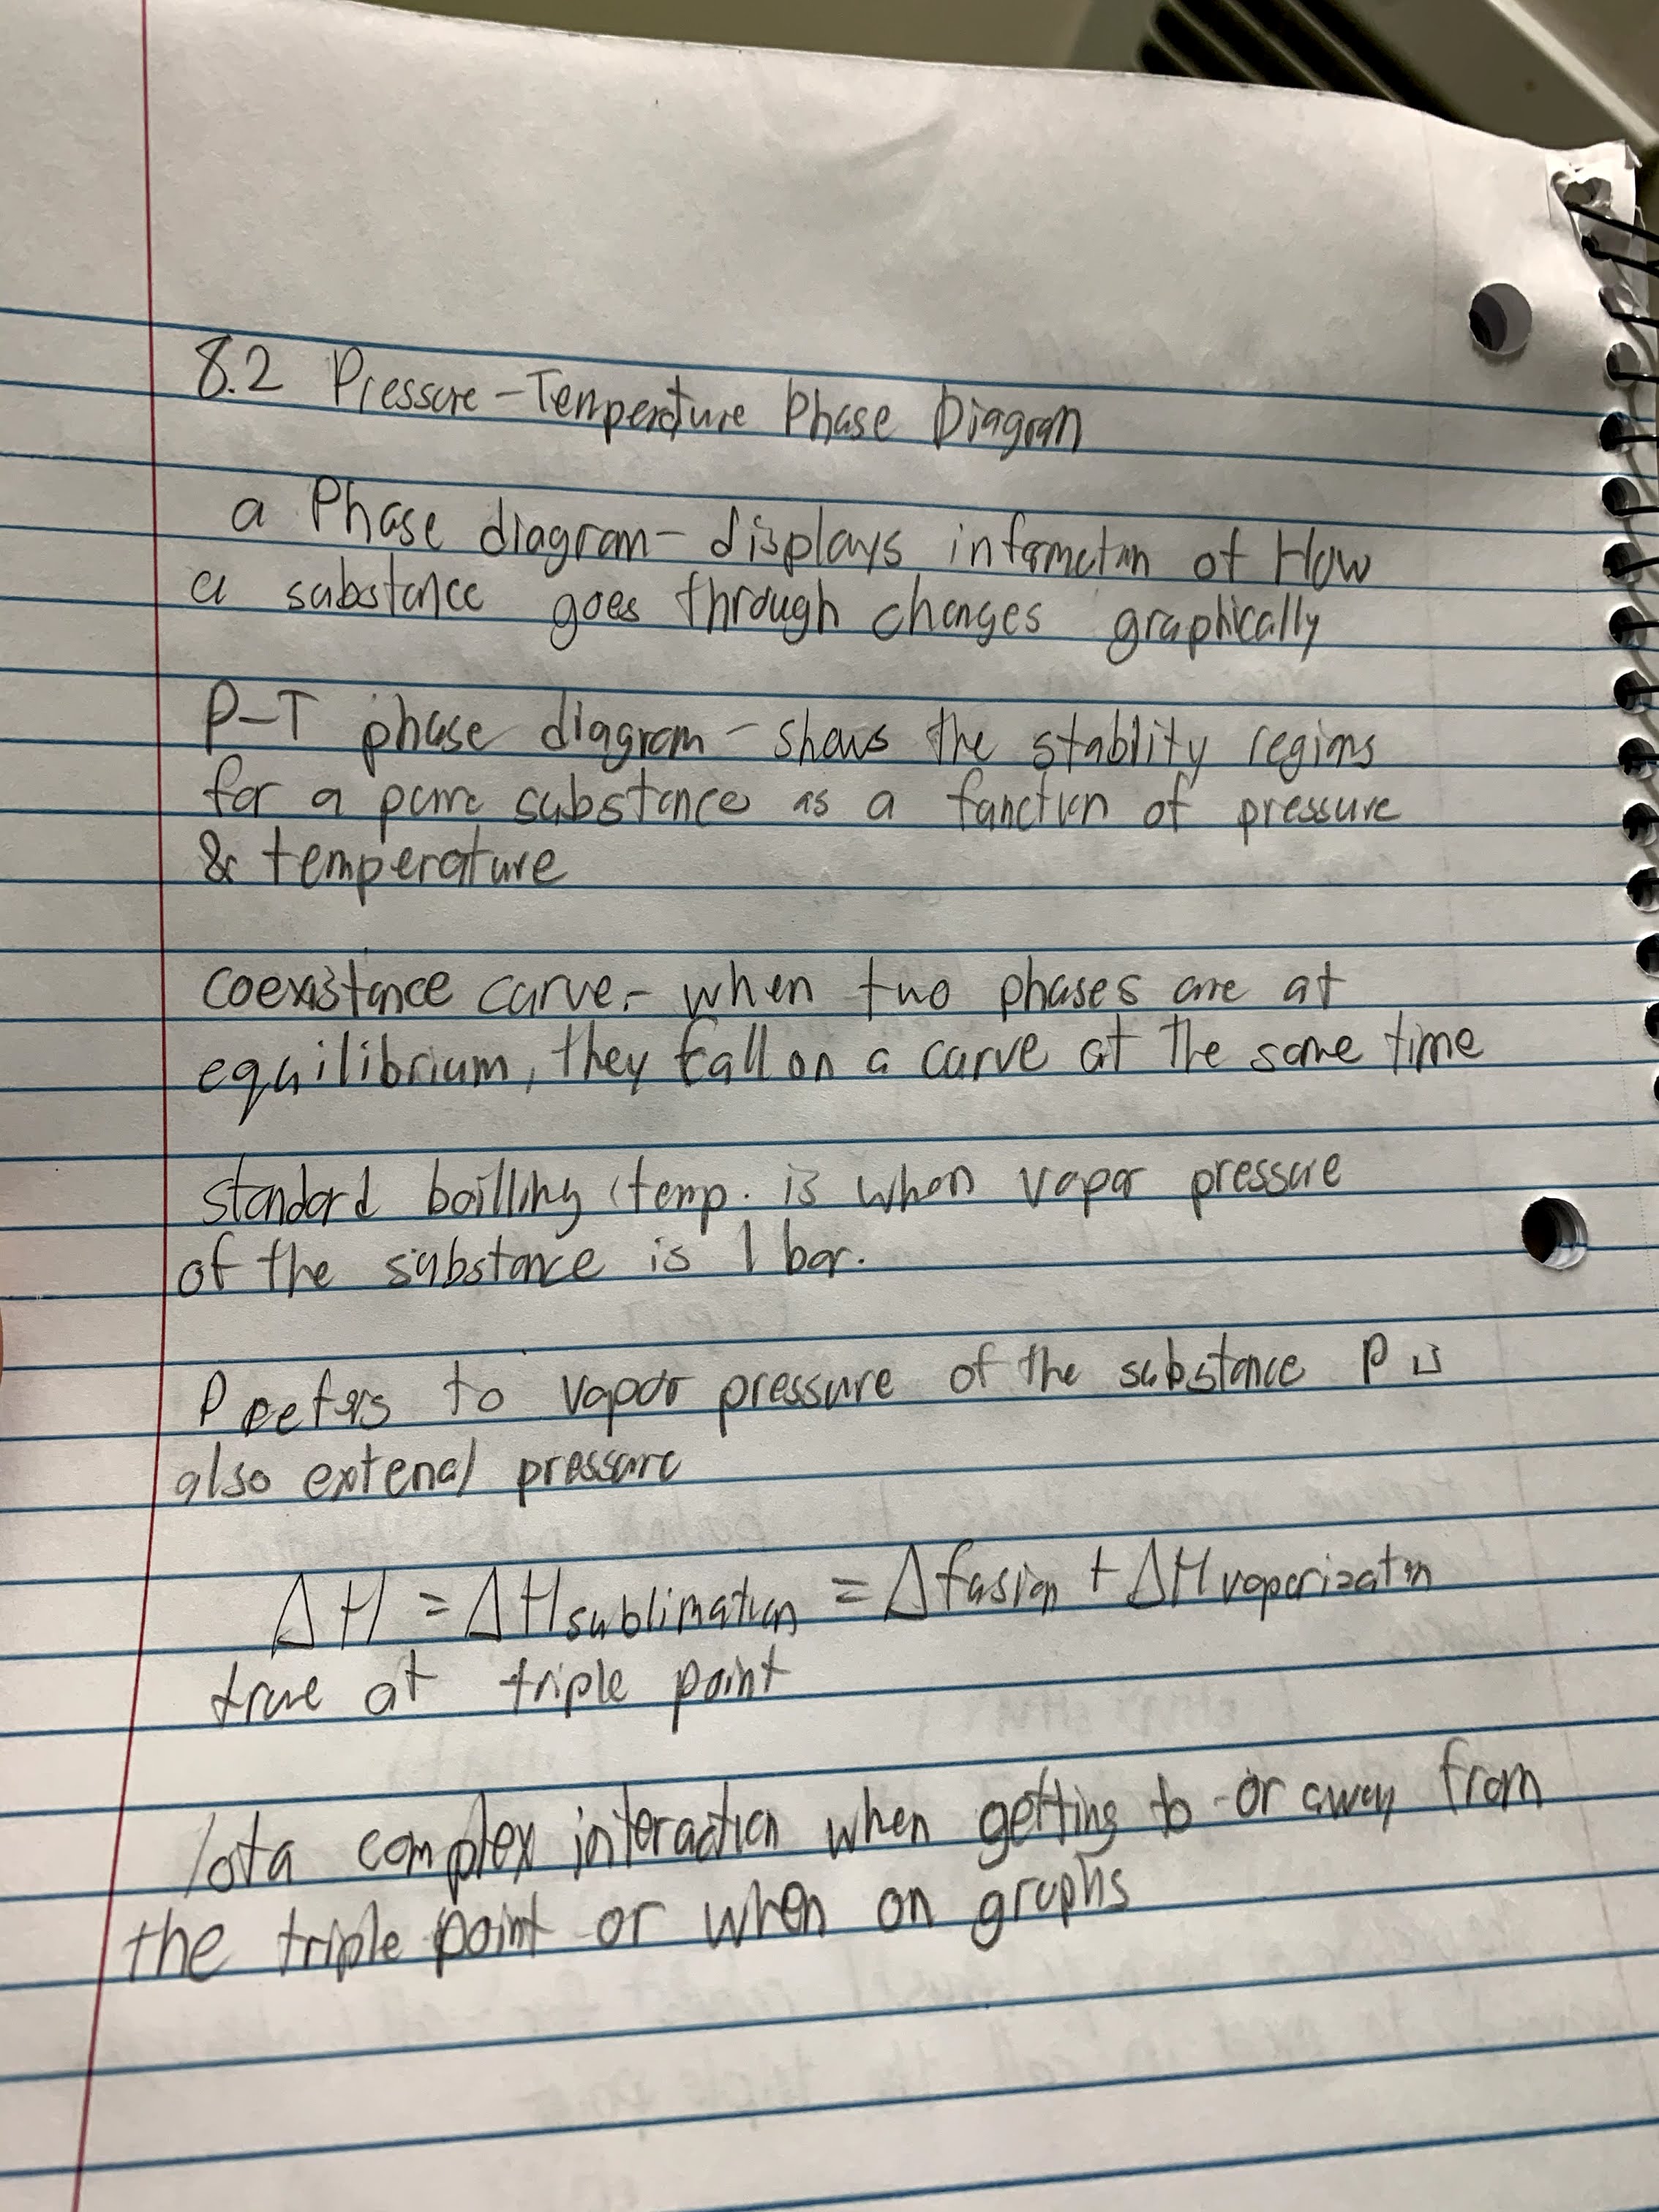 8.2 Pressure-Temperature Phase Diagram
a Phase diagram- displays information of How
a substance goes through changes graphically
P-T phase diagram - shows the stability regions
for a pure substance as a function of pressure
& temperature
coexistance curve - when two phases are at
equilibrium, they fall on a curve at the same time
standard boilling temp. is when vapor pressure
of the substance is 1 bar.
P refers to vapor pressure of the substance P is
also extenal pressure
ΔH = ΔHsublimation = Δfusion + ΔHvaporization
true at triple point
lota complex interaction when getting to or away from
the triple point or when on graphs